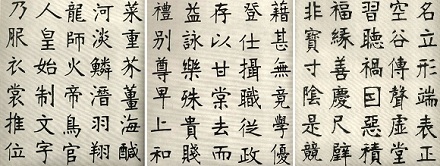 名立形端表正
空谷傳聲虛堂
習聽禍囙惡積
福緣善慶尺璧
非寶寸陰是競
藉甚無竟學優
登仕攝職從政
存以甘棠去而
益詠樂殊貴賤
禮別尊卑上和
菜重芥薑海鹹
河淡鱗潛羽翔
龍師火帝鳥官
人皇始制文字
乃服衣裳推位